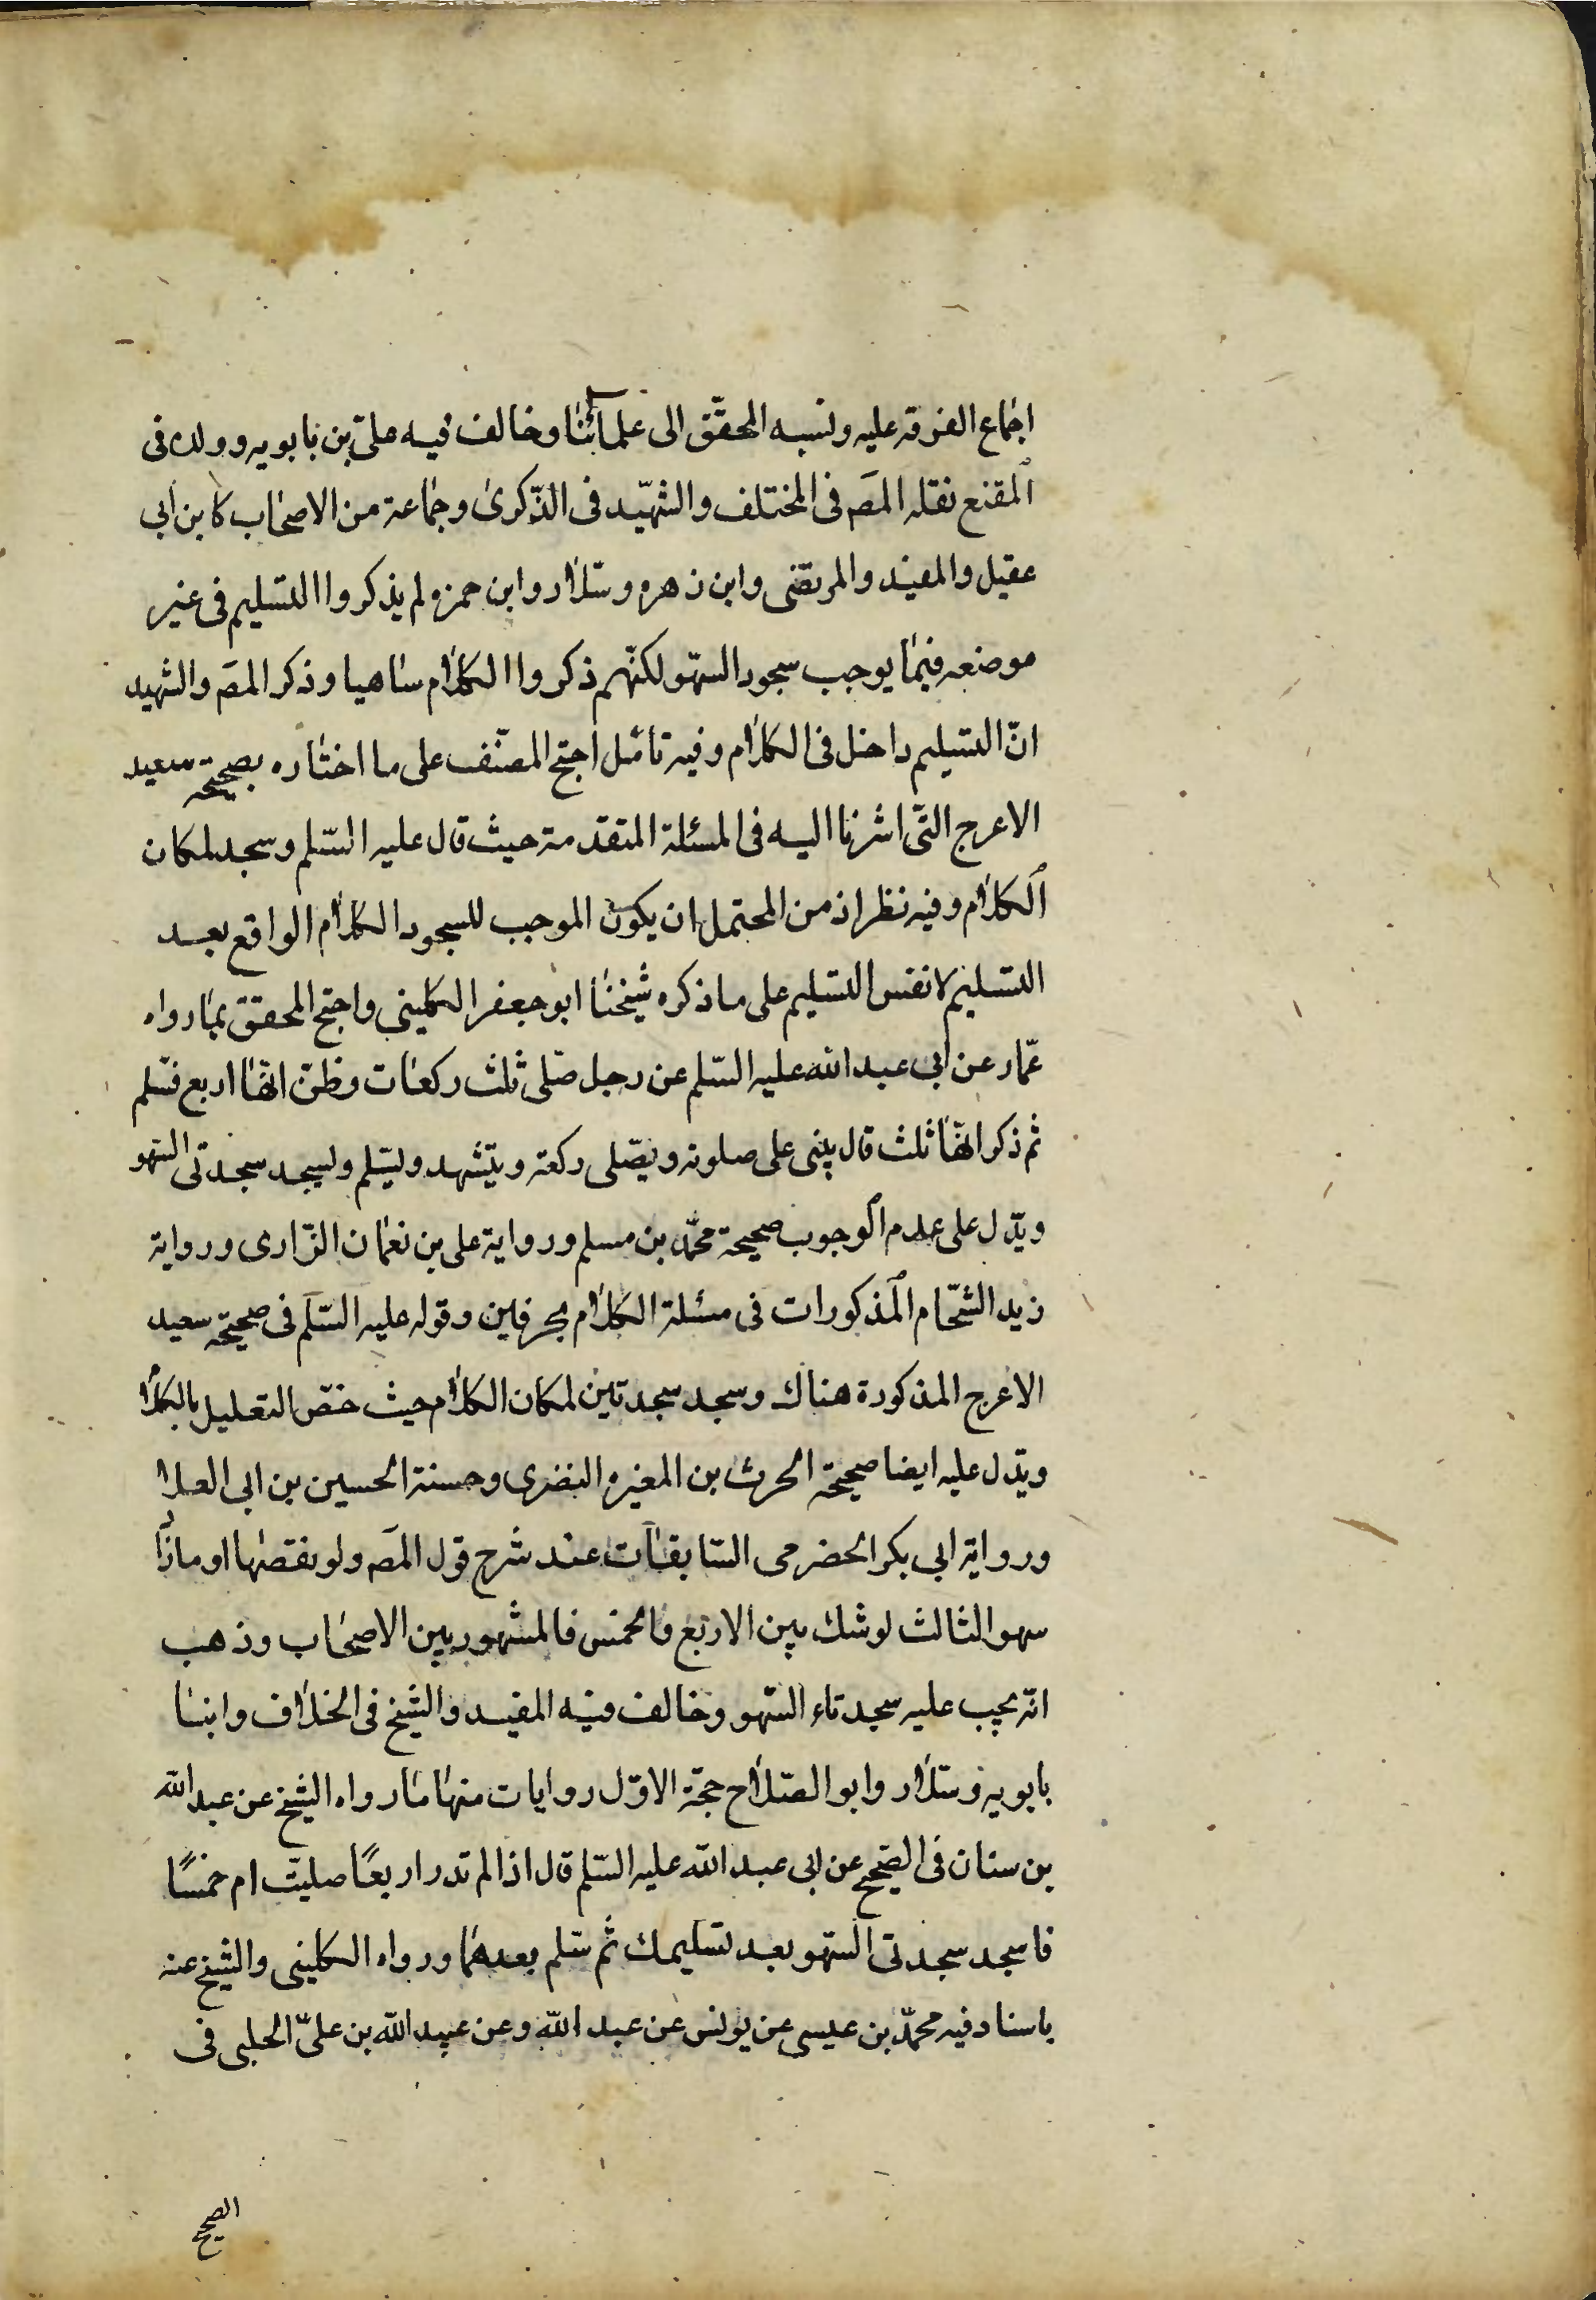 اجماع الفرقة عليه ونسبه المحقّق الى علمائنا وخالف فيه علىّ بن بابويه وولده فى
المقنع نقله المصَ فى المختلف والشهيد فى الذّكرى وجماعة من الاصحاب كابن ابى
عقيل والمفيد والمرتضى وابن زهره وسلار وابن حمزه لم يذكروا التسليم فى غير
موضعه فيما يوجب سجود السّهو لكنّهم ذكروا الكلام ساهيا وذكر المصَ والشهيد
انّ التسليم داخل فى الكلام وفيه تامّل احتج المصنّف على ما اختاره بصحيحة سعيد
الاعرج التّى اشرنا اليه فى المسئلة المتقدمة حيث قال عليه السّلم وسجد لمكان
الكلام وفيه نظر اذ من المحتمل ان يكون الموجب للسجود الكلام الواقع بعد
التسليم لا نفس التسليم على ما ذكره شيخنا ابو جعفر الكلينى واحتج المحقق بما رواه
عمّار عن ابى عبد الله عليه السّلم عن رجل صّلى ثلث ركعات وظنّ انّها اربع فسّلم
ثم ذكر انّها ثلث قال يبنى على صلوته ويصّلى ركعة ويتشهد ويسّلم ويسجد سجدتى السّهو
ويدّل على عدم الوجوب صحيحة محمّد بن مسلم ورواية على بن نعمان الرّازى ورواية
زيد الشحّام المذكورات فى مسئلة الكلام بحرفين وقوله عليه السّلم فى صحيحة سعيد
الاعرج المذكورة هناك وسجد سجدتين لمكان الكلام حيث خصّ التعليل بالكلام
ويدّل عليه ايضا صحيحة الحرث بن المغيره النضرى وحسنة الحسين بن ابى العلا
ورواية ابى بكر الحضرمى السّابقات عند شرح قول المصَ ولو نقصها او مازاد
سهوا الثالث لو شك بين الاربع والخمس فالمشهور بين الاصحاب وذهب
انّه يجب عليه سجدتاء السّهو وخالف فيه المفيد والشّيخ فى الخلاف وابنا
بابويه وسلّار وابو الصّلاح حجّة الاوّل روايات منها ما رواه الشيخ عن عبد الله
بن سنان فى الصّحيح عن ابى عبد الله عليه السّلم قال اذا لم تدر اربعًا صليّت ام خمسًا
فاسجد سجدتى السّهو بعد تسليمك ثم سّلم بعدهما ورواه الكلينى والشيخ عنه
باسناد فيه محمّد بن عيسى عن يونس عن عبد الله وعن عبيد الله بن علىّ الحلبى فى
الصحيح